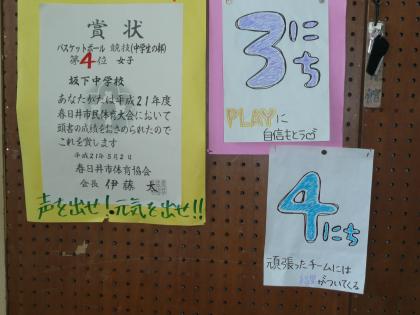 賞状
バスケットボール 競技(中学生の部)
第4位 女子
坂下中学校
あなたがたは平成21年度
春日井市民体育大会において
頭書の成績をおさめられたので
これを賞します
平成21年5月2日
春日井市体育協会
会長 伊藤 太
声を出せ!元気を出せ!!
3にち
PLAYに
自信もとうぜ
4にち
頑張ったチームには
がついてくる